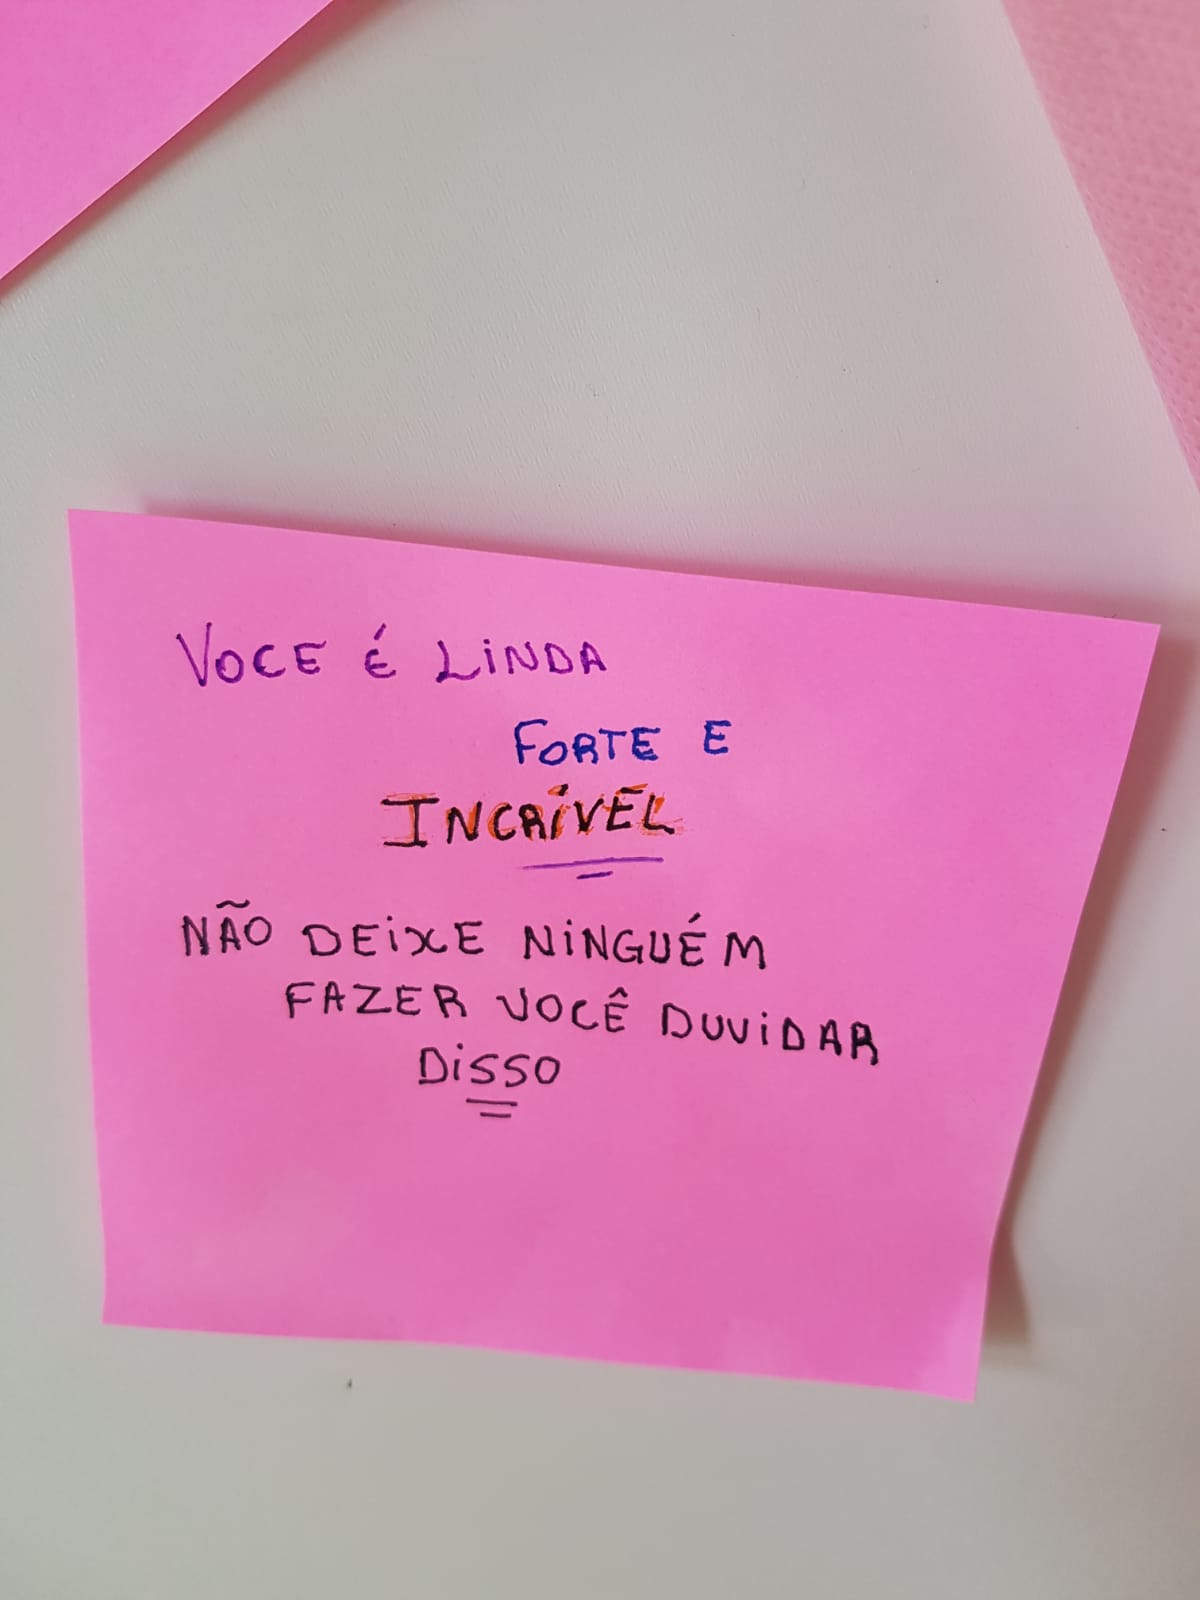 VOCE É LINDA
FORTE E
INCRÍVEL
NÃO DEIXE NINGUÉM
FAZER VOCÊ DUVIDAR
DISSO